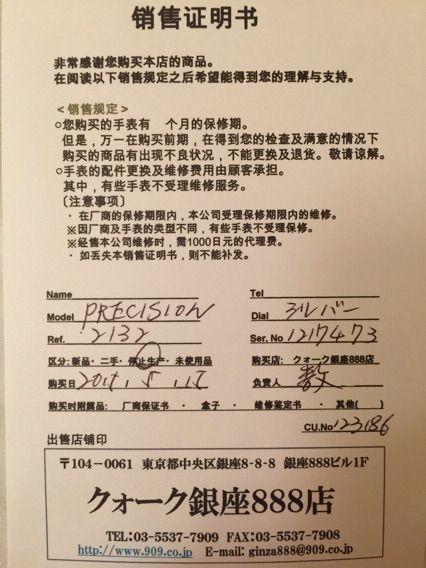 销售证明书
非常感谢您购买本店的商品。
在阅读以下销售规定之后希望能得到您的理解与支持。
＜销售规定＞
○您购买的手表有　个月的保修期。
但是，万一在购买前期，在得到您的检查及满意的情况下
购买的商品有出现不良状况，不能更换及退货。敬请谅解。
○手表的配件更换及维修费用由顾客承担。
其中，有些手表不受理维修服务。
〔注意事项〕
・在厂商的保修期限内，本公司受理保修期限内的维修。
※因厂商及手表的类型不同，有些手表不受理保修。
※经售本公司维修时，需1000日元的代理费。
・如丢失本销售证明书，则不能补发。
Name　Tel
Model PRECISION　Dial シルバー
Ref. 2132　Ser.No 1217473
区分：新品・二手・停止生产・未使用品　购买店：クォーク銀座888店
购买日　负责人
购买时附属品：厂商保证书・盒子・维修鉴定书・其他(　)
CU.No 123186
出售店铺印
〒104-0061 東京都中央区銀座8-8-8 銀座888ビル1F
クォーク銀座888店
TEL:03-5537-7909 FAX:03-5537-7908
http://www.909.co.jp E-mail: ginza888@909.co.jp